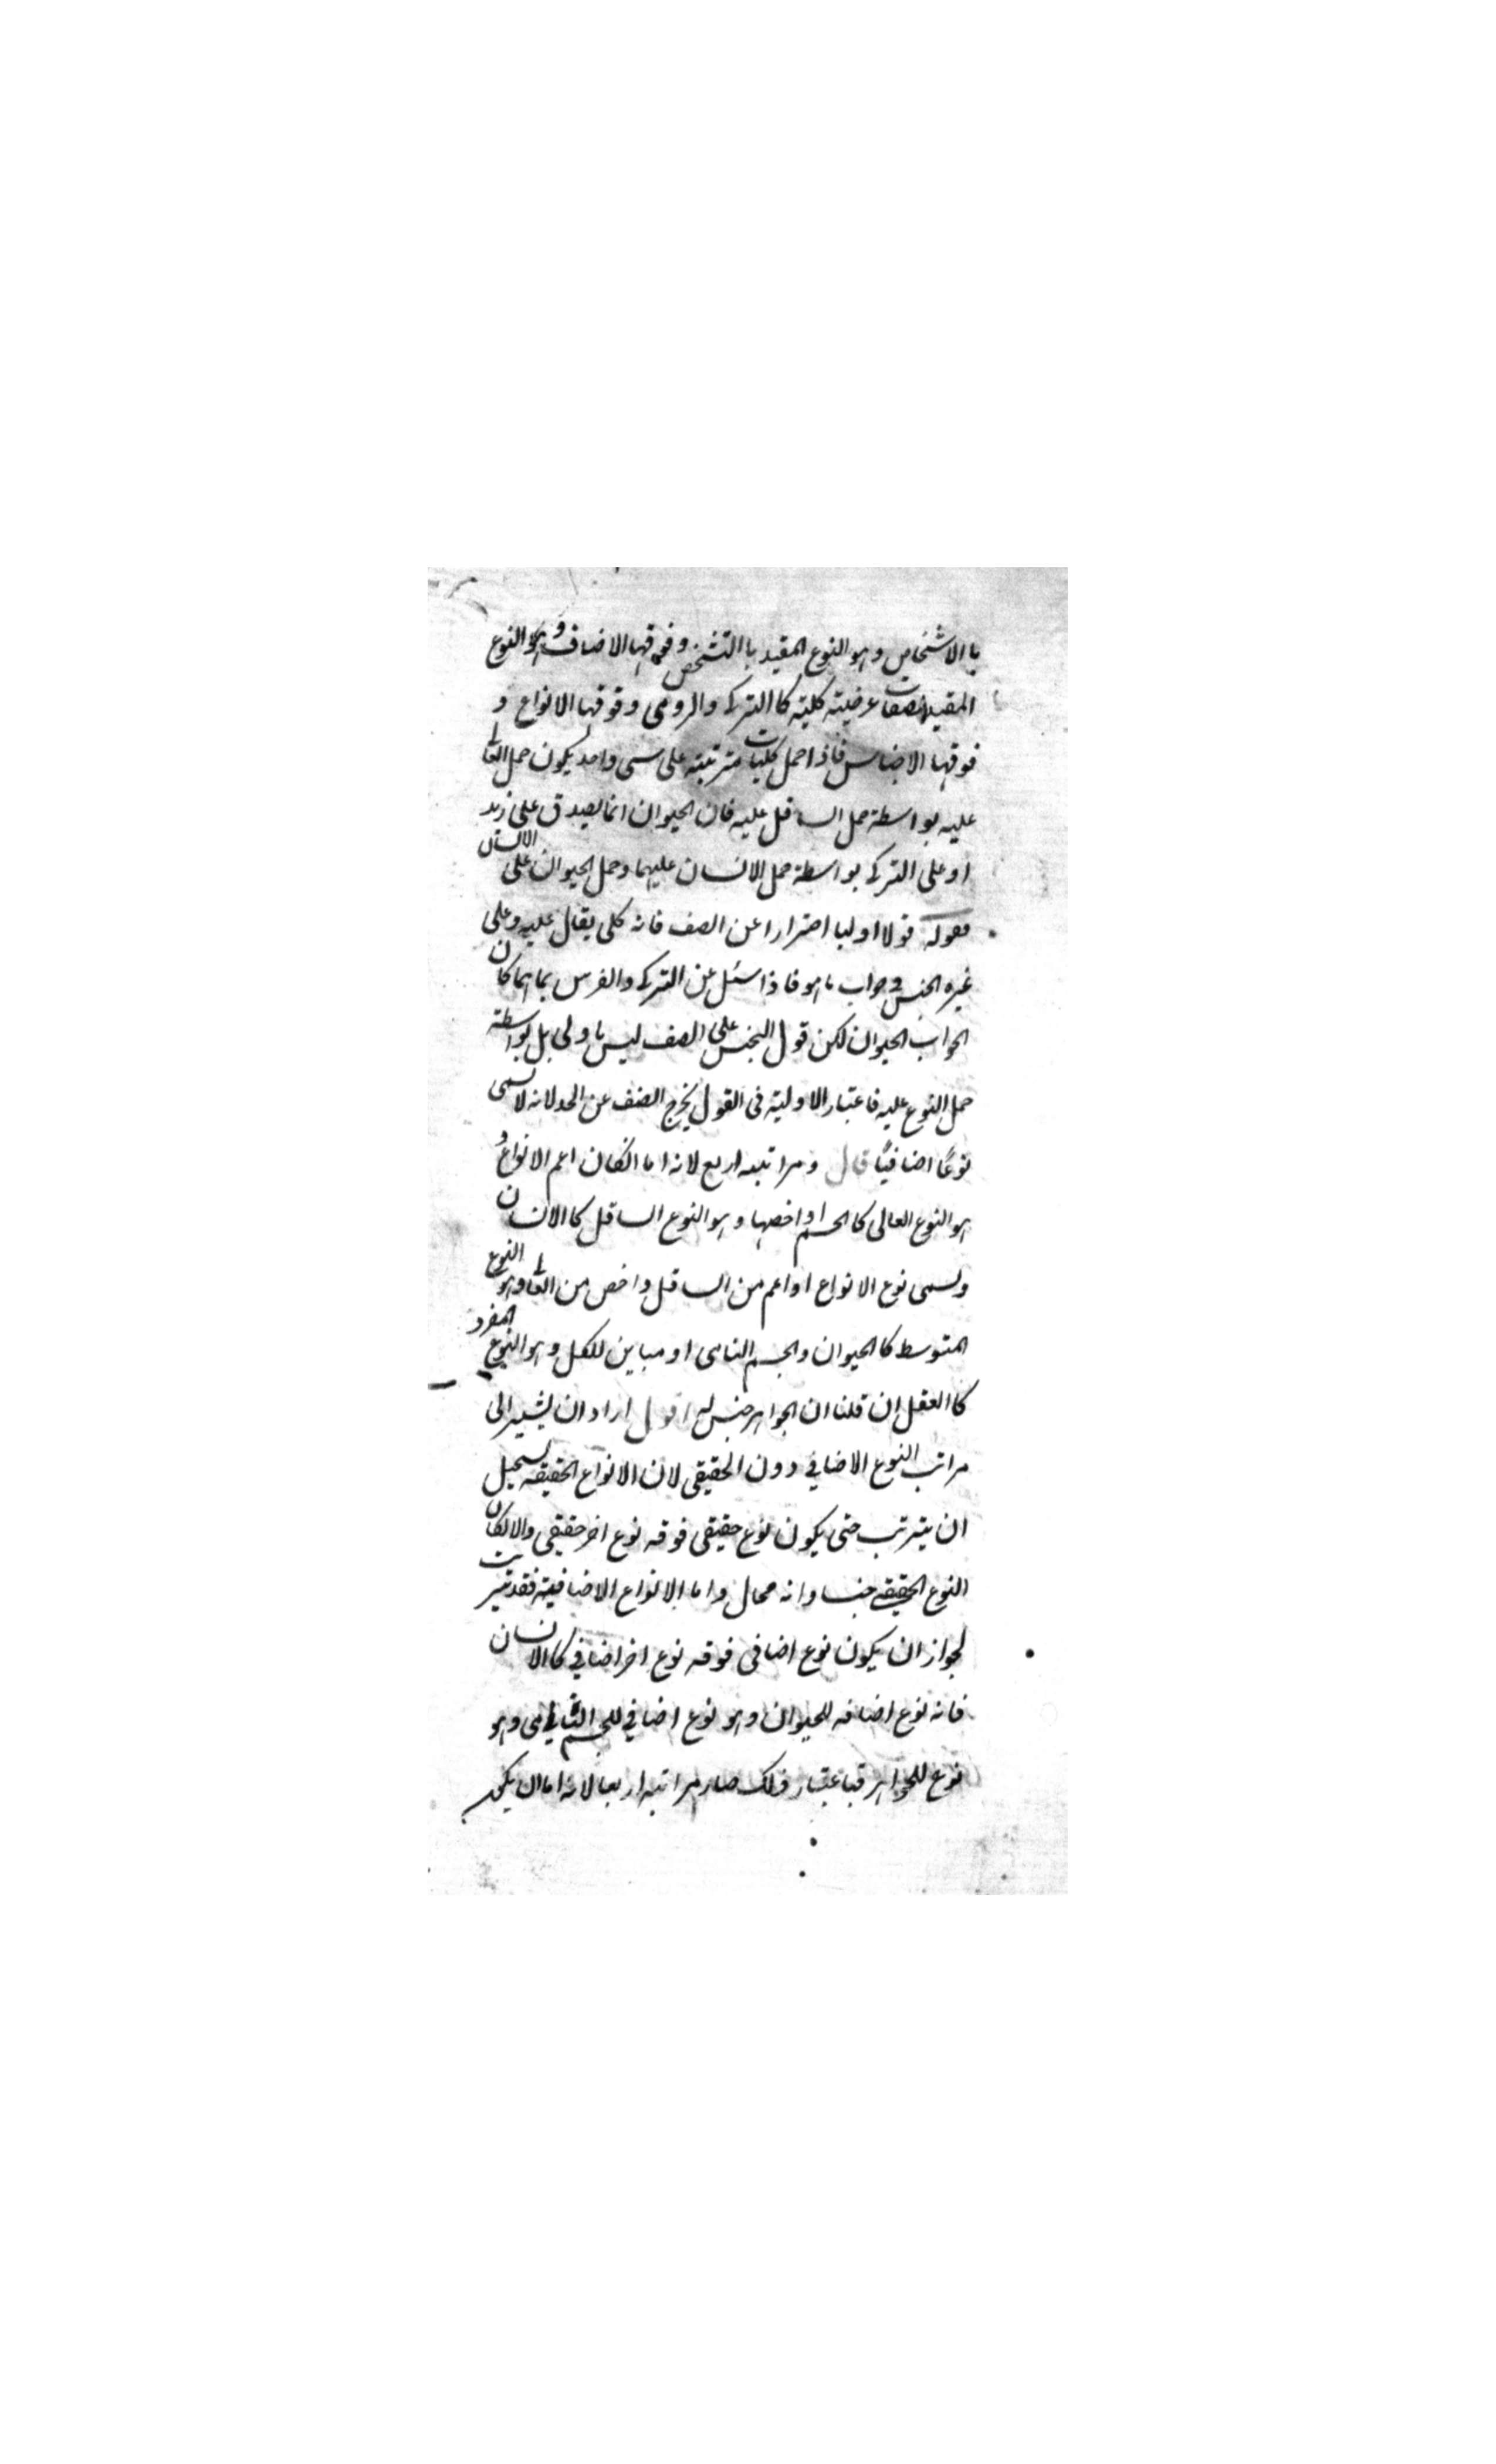 باالاشخاص وهو النوع المقيد باالتشخص وفوقها الاصناف وهو النوع
المقيد بصفات عرضية كلية كاالترك والرومى وفوقها الانواع و
فوقها الاجناس فاذا حمل كليات مترتبة على شى واحد يكون حمل العالى
عليه بواسطة حمل السافل عليه فان الحيوان انما يصدق على زيد
او على الترك بواسطة حمل الانسان عليهما وحمل الحيوان على الانسان
فقوله قولا اوليا احترازا عن الصنف فانه كلى يقال عليه وعلى
غيره الجنس فى جواب ما هو فاذا سئل عن الترك والفرس بما هما كان
الجواب الحيوان لكن قول الجنس على الصنف ليس باولى بل بواسطة
حمل النوع عليه فاعتبار الاولية فى القول يخرج الصنف عن الحد لانه لا يسمى
نوعًا اضافيًا قال ومراتبه اربع لانه اما انكان اعم الانواع و
هو النوع العالى كاالجسم او اخصها وهو النوع السافل كاالانسان
ويسمى نوع الانواع او اعم من السافل واخص من العالى وهو النوع
المتوسط كاالحيوان والجسم النامى او مباين للكل وهو النوع المفرد
كاالعقل ان قلنا ان الجواهر جنس له اقول اراد ان يشير الى
مراتب النوع الاضافي دون الحقيقى لان الانواع الحقيقه يستحيل
ان يترتب حتى يكون نوع حقيقى فوقه نوع اخر حقيقى والا لكان
النوع الحقيقى جنسا وانه محال واما الانواع الاضافية فقد تترتب
لجواز ان يكون نوع اضافى فوقه نوع اخر اضافي كاالانسان
فانه نوع اضافه للحيوان وهو نوع اضافي للجسم النامى وهو
نوع للجواهر فباعتبار ذلك صار مراتبه اربعا لانه اما ان يكون